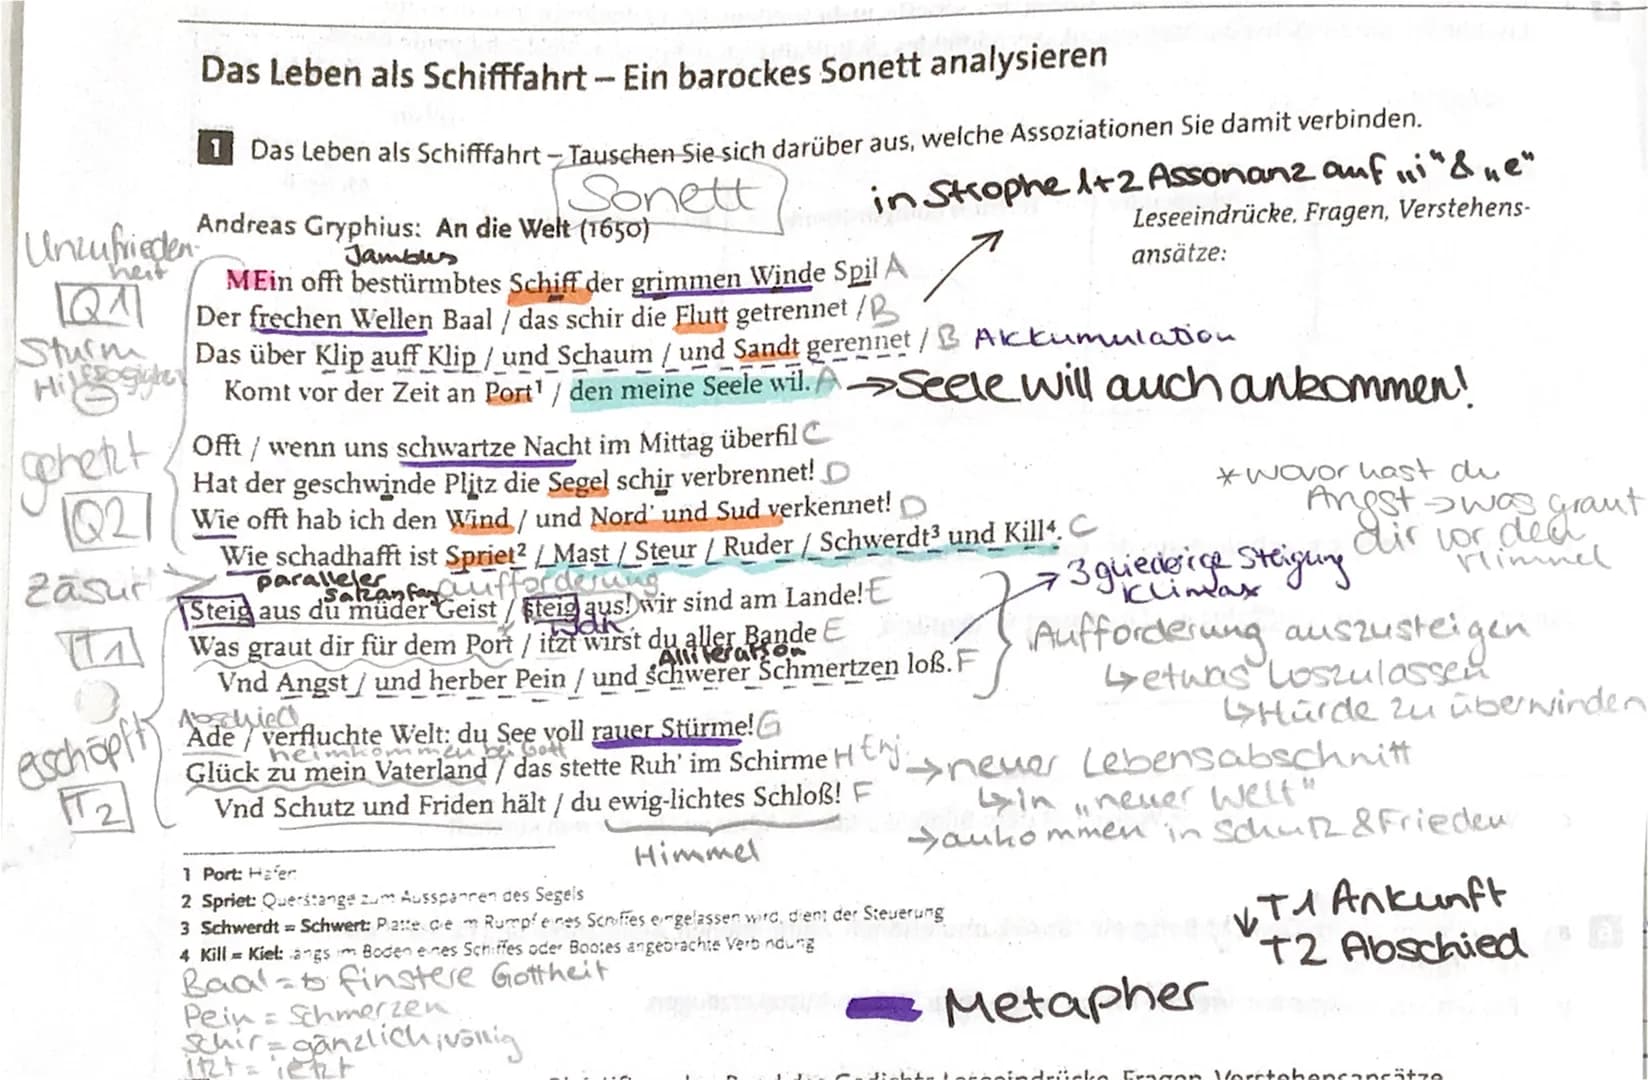 Das Leben als Schifffahrt – Ein barockes Sonett analysieren
1 Das Leben als Schifffahrt – Tauschen Sie sich darüber aus, welche Assoziationen Sie damit verbinden.
Sonett
in Strophe 1+2 Assonanz auf „i" & „e"
Leseeindrücke. Fragen, Verstehens-
ansätze:
Andreas Gryphius: An die Welt (1650)
Unzufrieden-
heit
Jambus
MEin offt bestürmbtes Schiff der grimmen Winde Spil A
Q1
Der frechen Wellen Baal / das schir die Flutt getrennet / B
Sturm
Das über Klip auff Klip / und Schaum / und Sandt gerennet / B Akkumulation
Komt vor der Zeit an Port¹ / den meine Seele wil. A → Seele will auch ankommen!
Offt / wenn uns schwartze Nacht im Mittag überfil C
gehetzt
Hat der geschwinde Plitz die Segel schir verbrennet! D
Q2
Wie offt hab ich den Wind / und Nord' und Sud verkennet! D
Wie schadhafft ist Spriet² / Mast / Steur / Ruder / Schwerdt³ und Kill⁴. C
* wovor hast du
Angst → was graut
dir vor dem
Himmel
Zäsur
paralleler
Satzanfang
Aufforderung
→ 3 gliederige Steigung
Klimax
Steig aus du müder Geist / steig aus! wir sind am Lande! E
T1
Was graut dir für dem Port / itzt wirst du aller Bande E
Aufforderung auszusteigen
↳ etwas loszulassen
↳ Hürde zu überwinden
Alliteration
Vnd Angst / und herber Pein / und schwerer Schmertzen loß. F
Abschied
Ade / verfluchte Welt: du See voll rauer Stürme! G
erschöpft
heimkommen bei Gott
Glück zu mein Vaterland / das stette Ruh' im Schirme H
→ neuer Lebensabschnitt
↳ in „neuer Welt"
→ ankommen in Schutz & Frieden
T2
Vnd Schutz und Friden hält / du ewig-lichtes Schloß! F
Himmel
1 Port: Hafen
2 Spriet: Querstange zum Ausspannen des Segels
3 Schwerdt = Schwert: Platte, die im Rumpf eines Schiffes eingelassen wird, dient der Steuerung
4 Kill = Kiel: längs im Boden eines Schiffes oder Bootes angebrachte Verbindung
↓ T1 Ankunft
T2 Abschied
Baal = finstere Gottheit
Pein = Schmerzen
Schir = gänzlich, völlig
Itzt = jetzt
Metapher